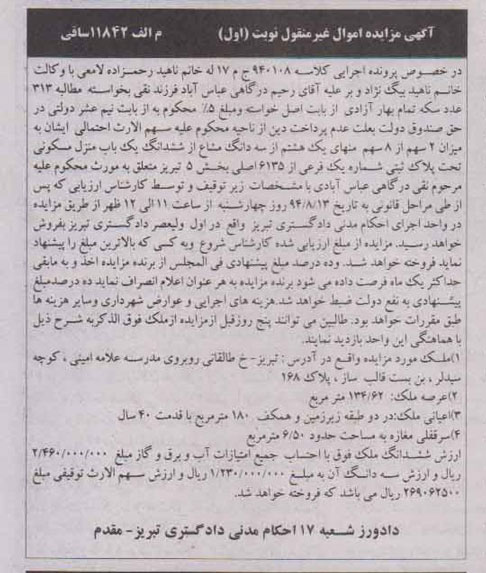 آگهی مزایده اموال غیرمنقول نوبت (اول) م الف ۱۱۸۴۲ساقی
در خصوص پرونده اجرایی کلاسه ۹۴۰۱۰۸ ج م ۱۷ له خانم ناهید رحمزاده لامعی با وکالت
خانم ناهید بیگ نژاد و بر علیه آقای رحیم درگاهی عباس آباد فرزند نقی بخواسته مطالبه ۳۱۳
عدد سکه تمام بهار آزادی از بابت اصل خواسته ومبلغ ۵٪ محکوم به از بابت نیم عشر دولتی در
حق صندوق دولت بعلت عدم پرداخت دین از ناحیه محکوم علیه سهم الارث احتمالی ایشان به
میزان ۲ سهم از ۸ سهم منهای یک هشتم از سه دانگ مشاع از ششدانگ یک باب منزل مسکونی
تحت پلاک ثبتی شماره یک فرعی از ۶۱۳۵ اصلی بخش ۵ تبریز متعلق به مورث محکوم علیه
مرحوم نقی درگاهی عباس آبادی با مشخصات زیر توقیف و توسط کارشناس ارزیابی که پس
از طی مراحل قانونی به تاریخ ۹۴/۸/۱۳ روز چهارشنبه از ساعت ۱۱ الی ۱۲ ظهر از طریق مزایده
در واحد اجرای احکام مدنی دادگستری تبریز واقع در اول ولیعصر دادگستری تبریز بفروش
خواهد رسید. مزایده از مبلغ ارزیابی شده کارشناس شروع وبه کسی که بالاترین مبلغ را پیشنهاد
نماید فروخته خواهد شد. وده درصد مبلغ پیشنهادی فی المجلس از برنده مزایده اخذ و به مابقی
حداکثر یک ماه فرصت داده می شود برنده مزایده به هر عنوان اعلام انصراف نماید ده درصدمبلغ
پیشنهادی به نفع دولت ضبط خواهد شد.هزینه های اجرایی و عوارض شهرداری وسایر هزینه ها
طبق مقررات خواهد بود. طالبین می توانند پنج روزقبل ازمزایده ازملک فوق الذکربه شرح ذیل
با هماهنگی این واحد بازدید نمایند.
۱)ملک مورد مزایده واقع در آدرس : تبریز- خ طالقانی روبروی مدرسه علامه امینی ، کوچه
سیدلر ، بن بست قالب ساز ، پلاک ۱۶۸
۲)عرصه ملک: ۱۳۴/۶۲ متر مربع
۳)اعیانی ملک:در دو طبقه زیرزمین و همکف ۱۸۰ مترمربع با قدمت ۴۰ سال
۴)سرقفلی مغازه به مساحت حدود ۶/۵۰ مترمربع
ارزش ششدانگ ملک فوق با احساب جمیع امتیازات آب و برق و گاز مبلغ ۲/۴۶۰/۰۰۰/۰۰۰
ریال و ارزش سه دانگ آن به مبلغ ۱/۲۳۰/۰۰۰/۰۰۰ ریال و ارزش سهم الارث توقیفی مبلغ
۲۶۹۰۶۲۵۰۰ ریال می باشد که فروخته خواهد شد.
دادورز شعبه ۱۷ احکام مدنی دادگستری تبریز- مقدم